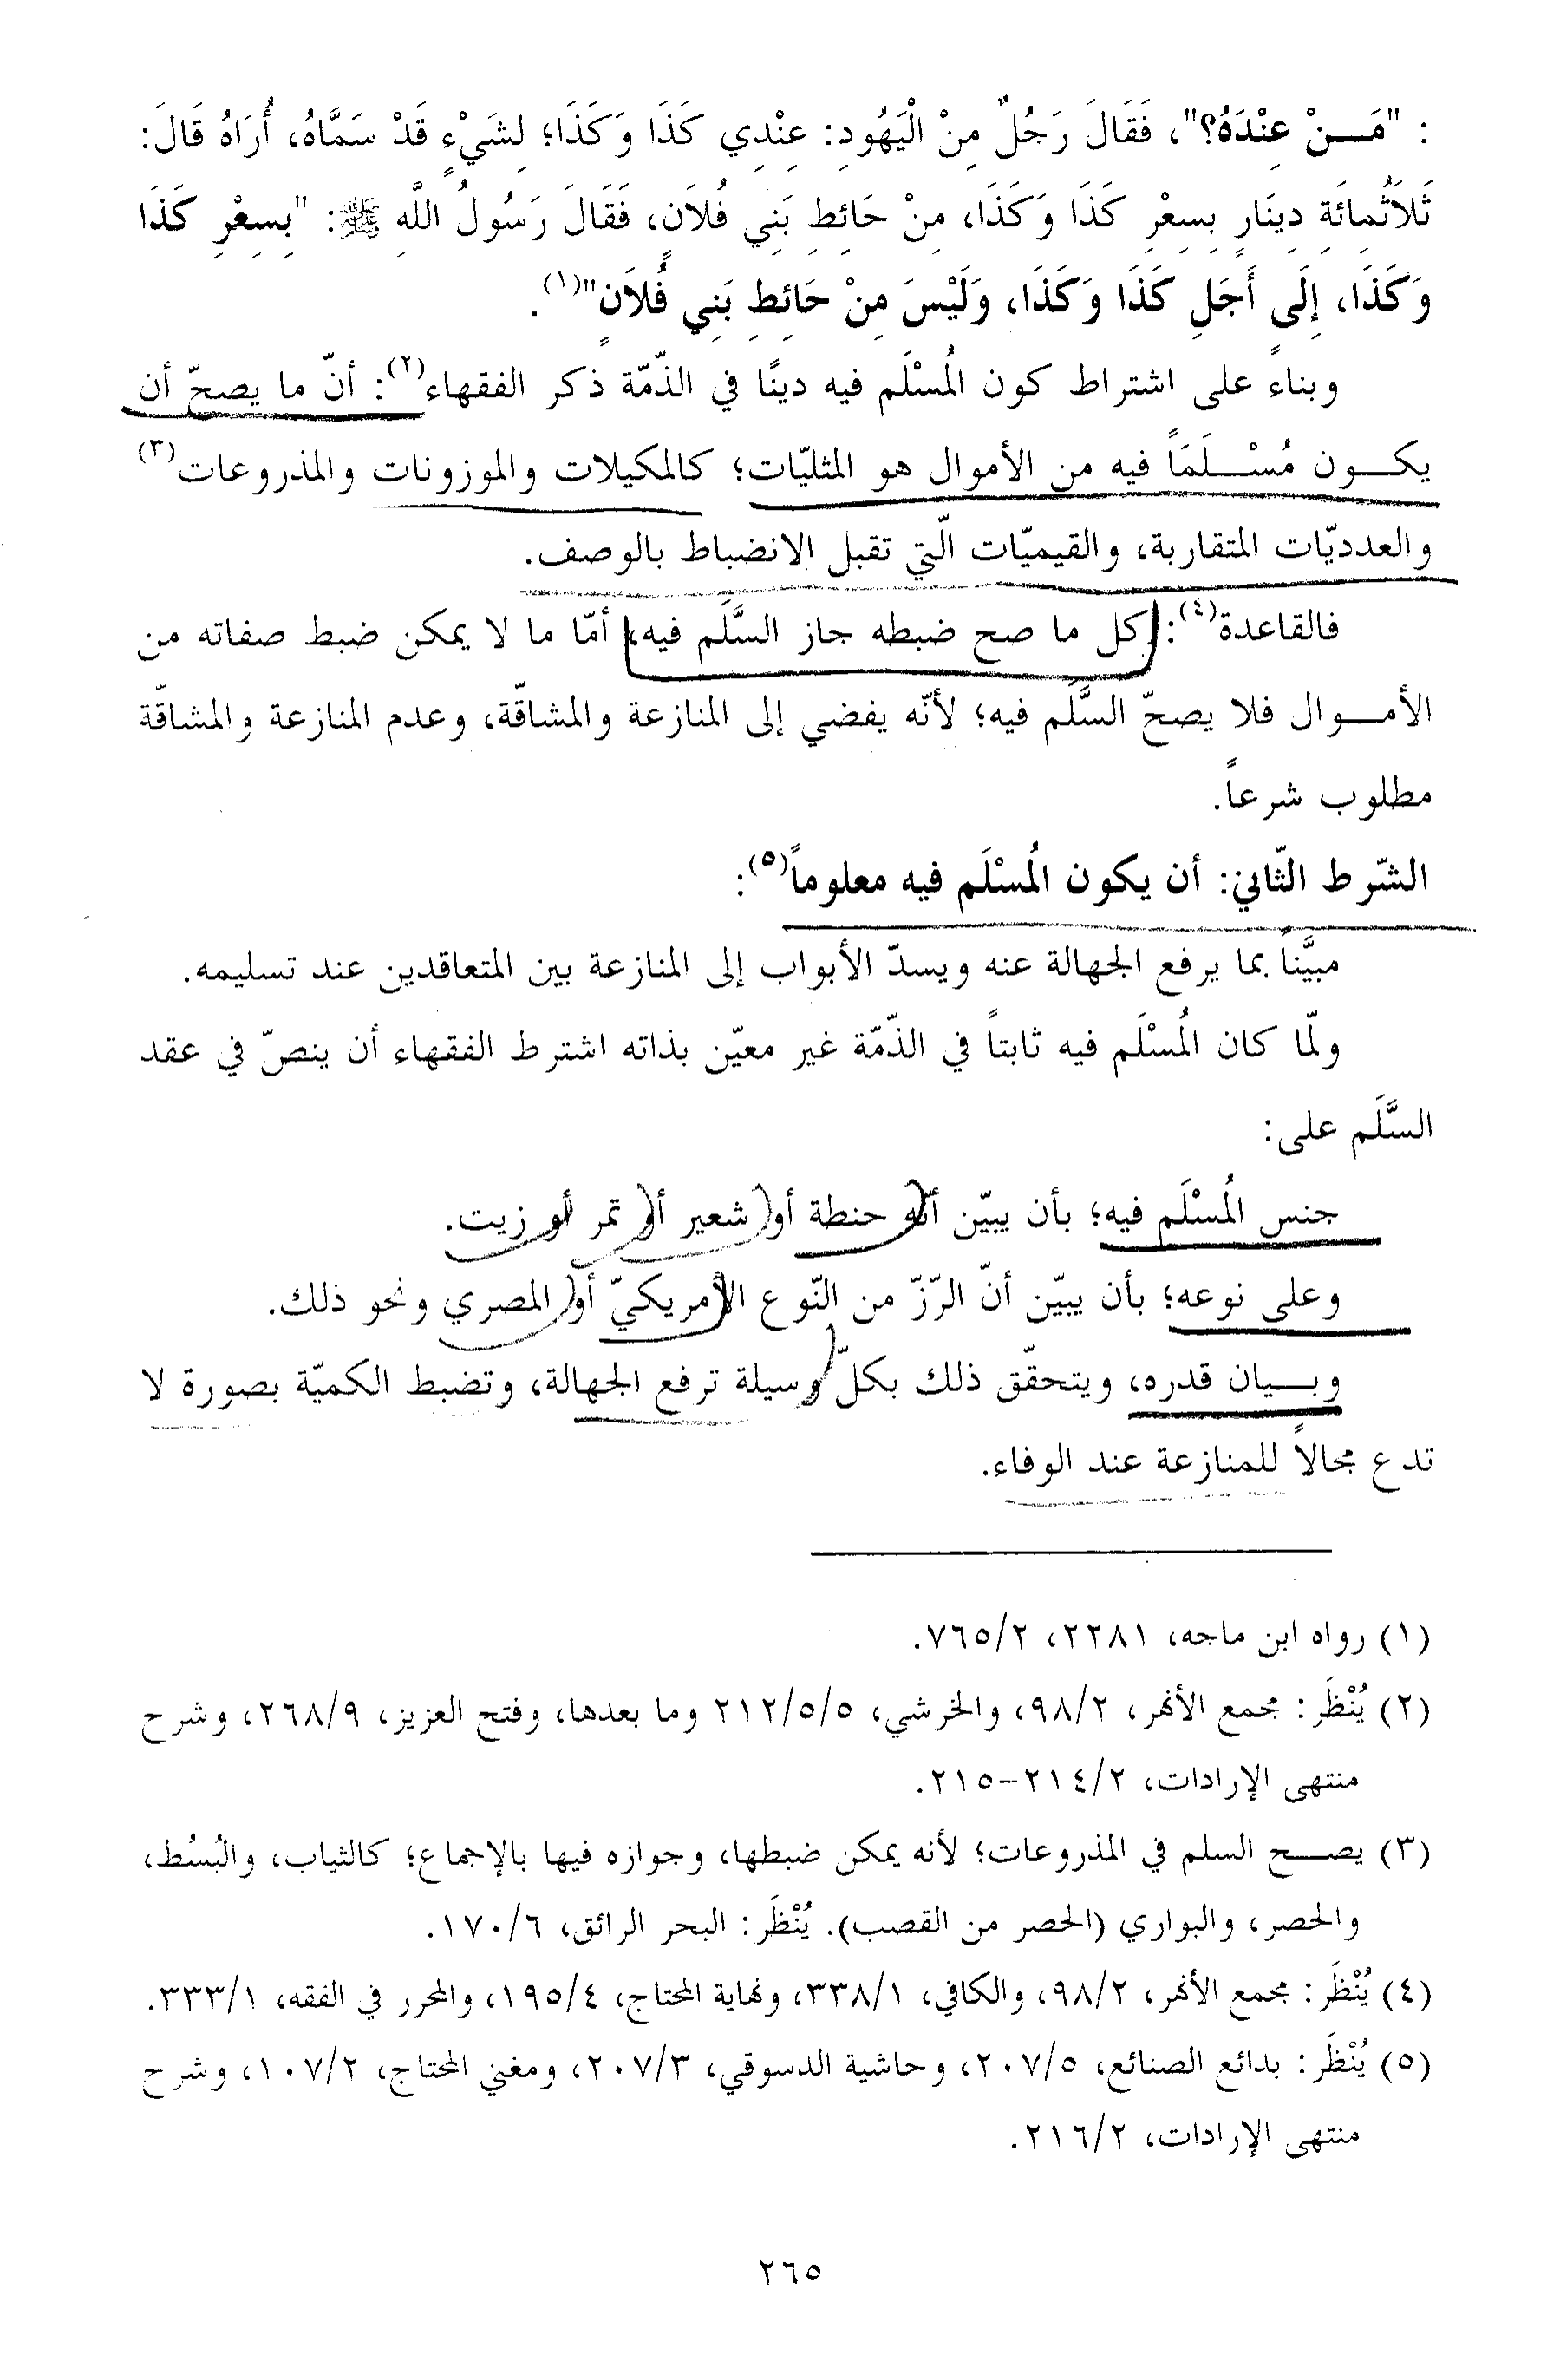 : "مَـــنْ عِنْدَهُ؟"، فَقَالَ رَجُلٌ مِنْ الْيَهُودِ: عِنْدِي كَذَا وَكَذَا؛ لِشَيْءٍ قَدْ سَمَّاهُ، أُرَاهُ قَالَ:
ثَلاَثُمِائَةِ دِينَارٍ بِسِعْرِ كَذَا وَكَذَا، مِنْ حَائِطِ بَنِي فُلاَنٍ، فَقَالَ رَسُولُ اللَّهِ ﷺ: "بِسِعْرِ كَذَا
وَكَذَا، إِلَى أَجَلِ كَذَا وَكَذَا، وَلَيْسَ مِنْ حَائِطِ بَنِي فُلاَنٍ"(١).
وبناءً على اشتراط كون المُسْلَم فيه دينًا في الذّمّة ذكر الفقهاء(٢): أنّ ما يصحّ أن
يكـــون مُسْـــلَمَاً فيه من الأموال هو المثليّات؛ كالمكيلات والموزونات والمذروعات(٣)
والعدديّات المتقاربة، والقيميّات الّتي تقبل الانضباط بالوصف.
فالقاعدة(٤): كل ما صح ضبطه جاز السَّلَم فيه، أمّا ما لا يمكن ضبط صفاته من
الأمـــوال فلا يصحّ السَّلَم فيه؛ لأنّه يفضي إلى المنازعة والمشاقّة، وعدم المنازعة والمشاقّة
مطلوب شرعاً.
الشّرط الثّاني: أن يكون المُسْلَم فيه معلوماً(٥):
مبيَّناً بما يرفع الجهالة عنه ويسدّ الأبواب إلى المنازعة بين المتعاقدين عند تسليمه.
ولمّا كان المُسْلَم فيه ثابتاً في الذّمّة غير معيّن بذاته اشترط الفقهاء أن ينصّ في عقد
السَّلَم على:
جنس المُسْلَم فيه؛ بأن يبيّن أنّه حنطة أو شعير أو تمر أو زيت.
وعلى نوعه؛ بأن يبيّن أنّ الرّزّ من النّوع الأمريكيّ أو المصري ونحو ذلك.
وبـــيان قدره، ويتحقّق ذلك بكلّ وسيلة ترفع الجهالة، وتضبط الكميّة بصورة لا
تدع مجالاً للمنازعة عند الوفاء.
(١) رواه ابن ماجه، ٢٢٨١، ٧٦٥/٢.
(٢) يُنْظَر: مجمع الأنهر، ٩٨/٢، والخرشي، ٢١٢/٥/٥ وما بعدها، وفتح العزيز، ٢٦٨/٩، وشرح
منتهى الإرادات، ٢١٤/٢-٢١٥.
(٣) يصـــح السلم في المذروعات؛ لأنه يمكن ضبطها، وجوازه فيها بالإجماع؛ كالثياب، والبُسُط،
والحصر، والبواري (الحصر من القصب). يُنْظَر: البحر الرائق، ١٧٠/٦.
(٤) يُنْظَر: مجمع الأنهر، ٩٨/٢، والكافي، ٣٣٨/١، ونهاية المحتاج، ١٩٥/٤، والمحرر في الفقه، ٣٣٣/١.
(٥) يُنْظَر: بدائع الصنائع، ٢٠٧/٥، وحاشية الدسوقي، ٢٠٧/٣، ومغني المحتاج، ١٠٧/٢، وشرح
منتهى الإرادات، ٢١٦/٢.
٢٦٥